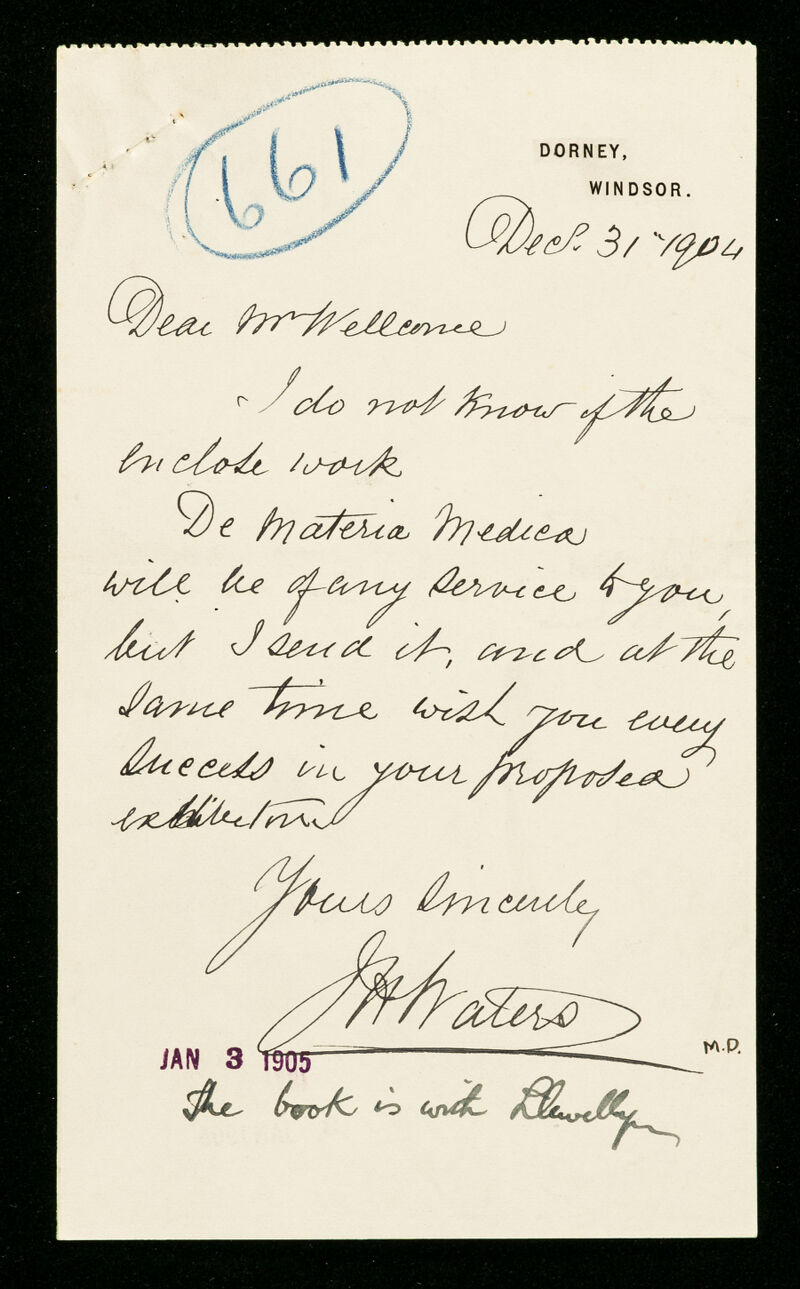 661
DORNEY,
WINDSOR.
Dec. 31st 1904
Dear Mr Wellcome
I do not know if the
enclose work
De Materia Medica
will be of any service to you,
but I send it, and at the
same time wish you every
success in your proposed
exhibition
Yours Sincerely
J H Waters
M.D.
JAN 3 1905
The book is with Llewellyn